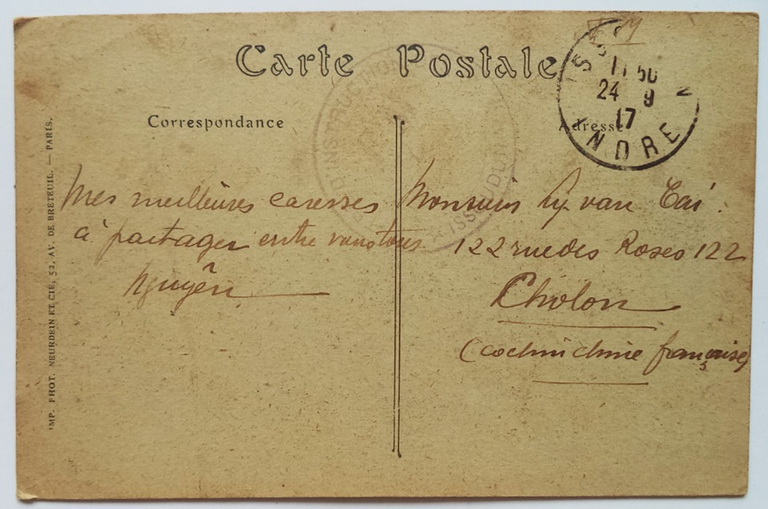 Carte Postale
Correspondance
Adresse
11 50
24 9
17
INDRE
Mes meilleures caresses
à partager entre vous tous.
Nguyên
Monsieur Ly van Tai
122 rue des Roses 122
Cholon
(Cochinchine française)
IMP. PHOT. NEURDEIN ET CIE, 52, AV. DE BRETEUIL. — PARIS.